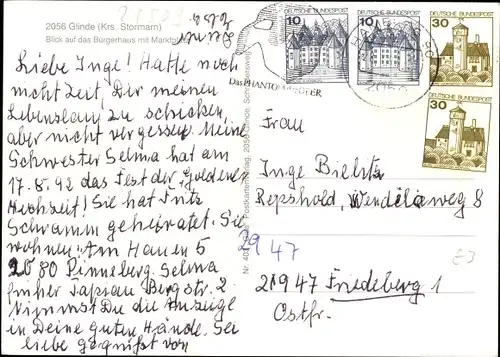 2056 Glinde (Krs. Stormarn)
Blick auf das Bürgerhaus mit Marktplatz
Liebe Inge! Hatte noch
nicht Zeit, Dir meinen
Lebenslauf zu schicken,
aber nicht vergessen. Meine
Schwester Selma hat am
17.8.92 das Fest der Goldenen
Hochzeit! Sie hat Fritz
Schramm geheiratet. Sie
wohnen: Am Hauen 5
2080 Pinneberg. Selma
früher Tapiau Bergstr. 2.
Nimmst Du die Anzeige
in Deine guten Hände. Sei
liebe gegrüßt von
10
DEUTSCHE BUNDESPOST
10
DEUTSCHE BUNDESPOST
DEUTSCHE BUNDESPOST
30
DEUTSCHE BUNDESPOST
30
Das PHANTOM
Frau
Inge
Repshold, Wendeleaweg 8
2947
21947 Friedeberg 1
Ostfr.
E3